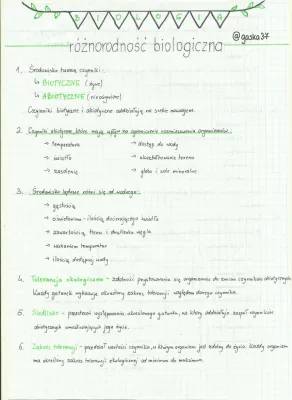 BIOLOGIA
@gaska37
różnorodność biologiczna
1. Środowisko tworzą czynniki:
↳ BIOTYCZNE (żywe)
↳ ABIOTYCZNE (nieożywione)
Czynniki biotyczne i abiotyczne oddziałują na siebie nawzajem.
2. Czynniki abiotyczne, które mają wpływ na rozmieszczenie organizmów:
→ temperatura → dostęp do wody
→ światło → ukształtowanie terenu
→ zasolenie → gleba i sole mineralne
3. Środowisko lądowe różni się od wodnego:
→ gęstością
→ oświetleniem - ilością docierającego światła
→ zawartością tlenu i dwutlenku węgla
→ wahaniem temperatur
→ ilością dostępnej wody
4. Tolerancja ekologiczna - zdolność przystosowania się organizmów do zmian czynników abiotycznych.
Każdy gatunek wykazuje określony zakres tolerancji względem danego czynnika.
5. Siedlisko - przestrzeń występowania określonego gatunku, na którą oddziałuje zespół czynników
abiotycznych umożliwiających jego życie.
6. Zakres tolerancji - przedział wartości czynnika, w którym organizm jest zdolny do życia. Każdy organizm
ma określony zakres tolerancji ekologicznej od minimum do maksimum.